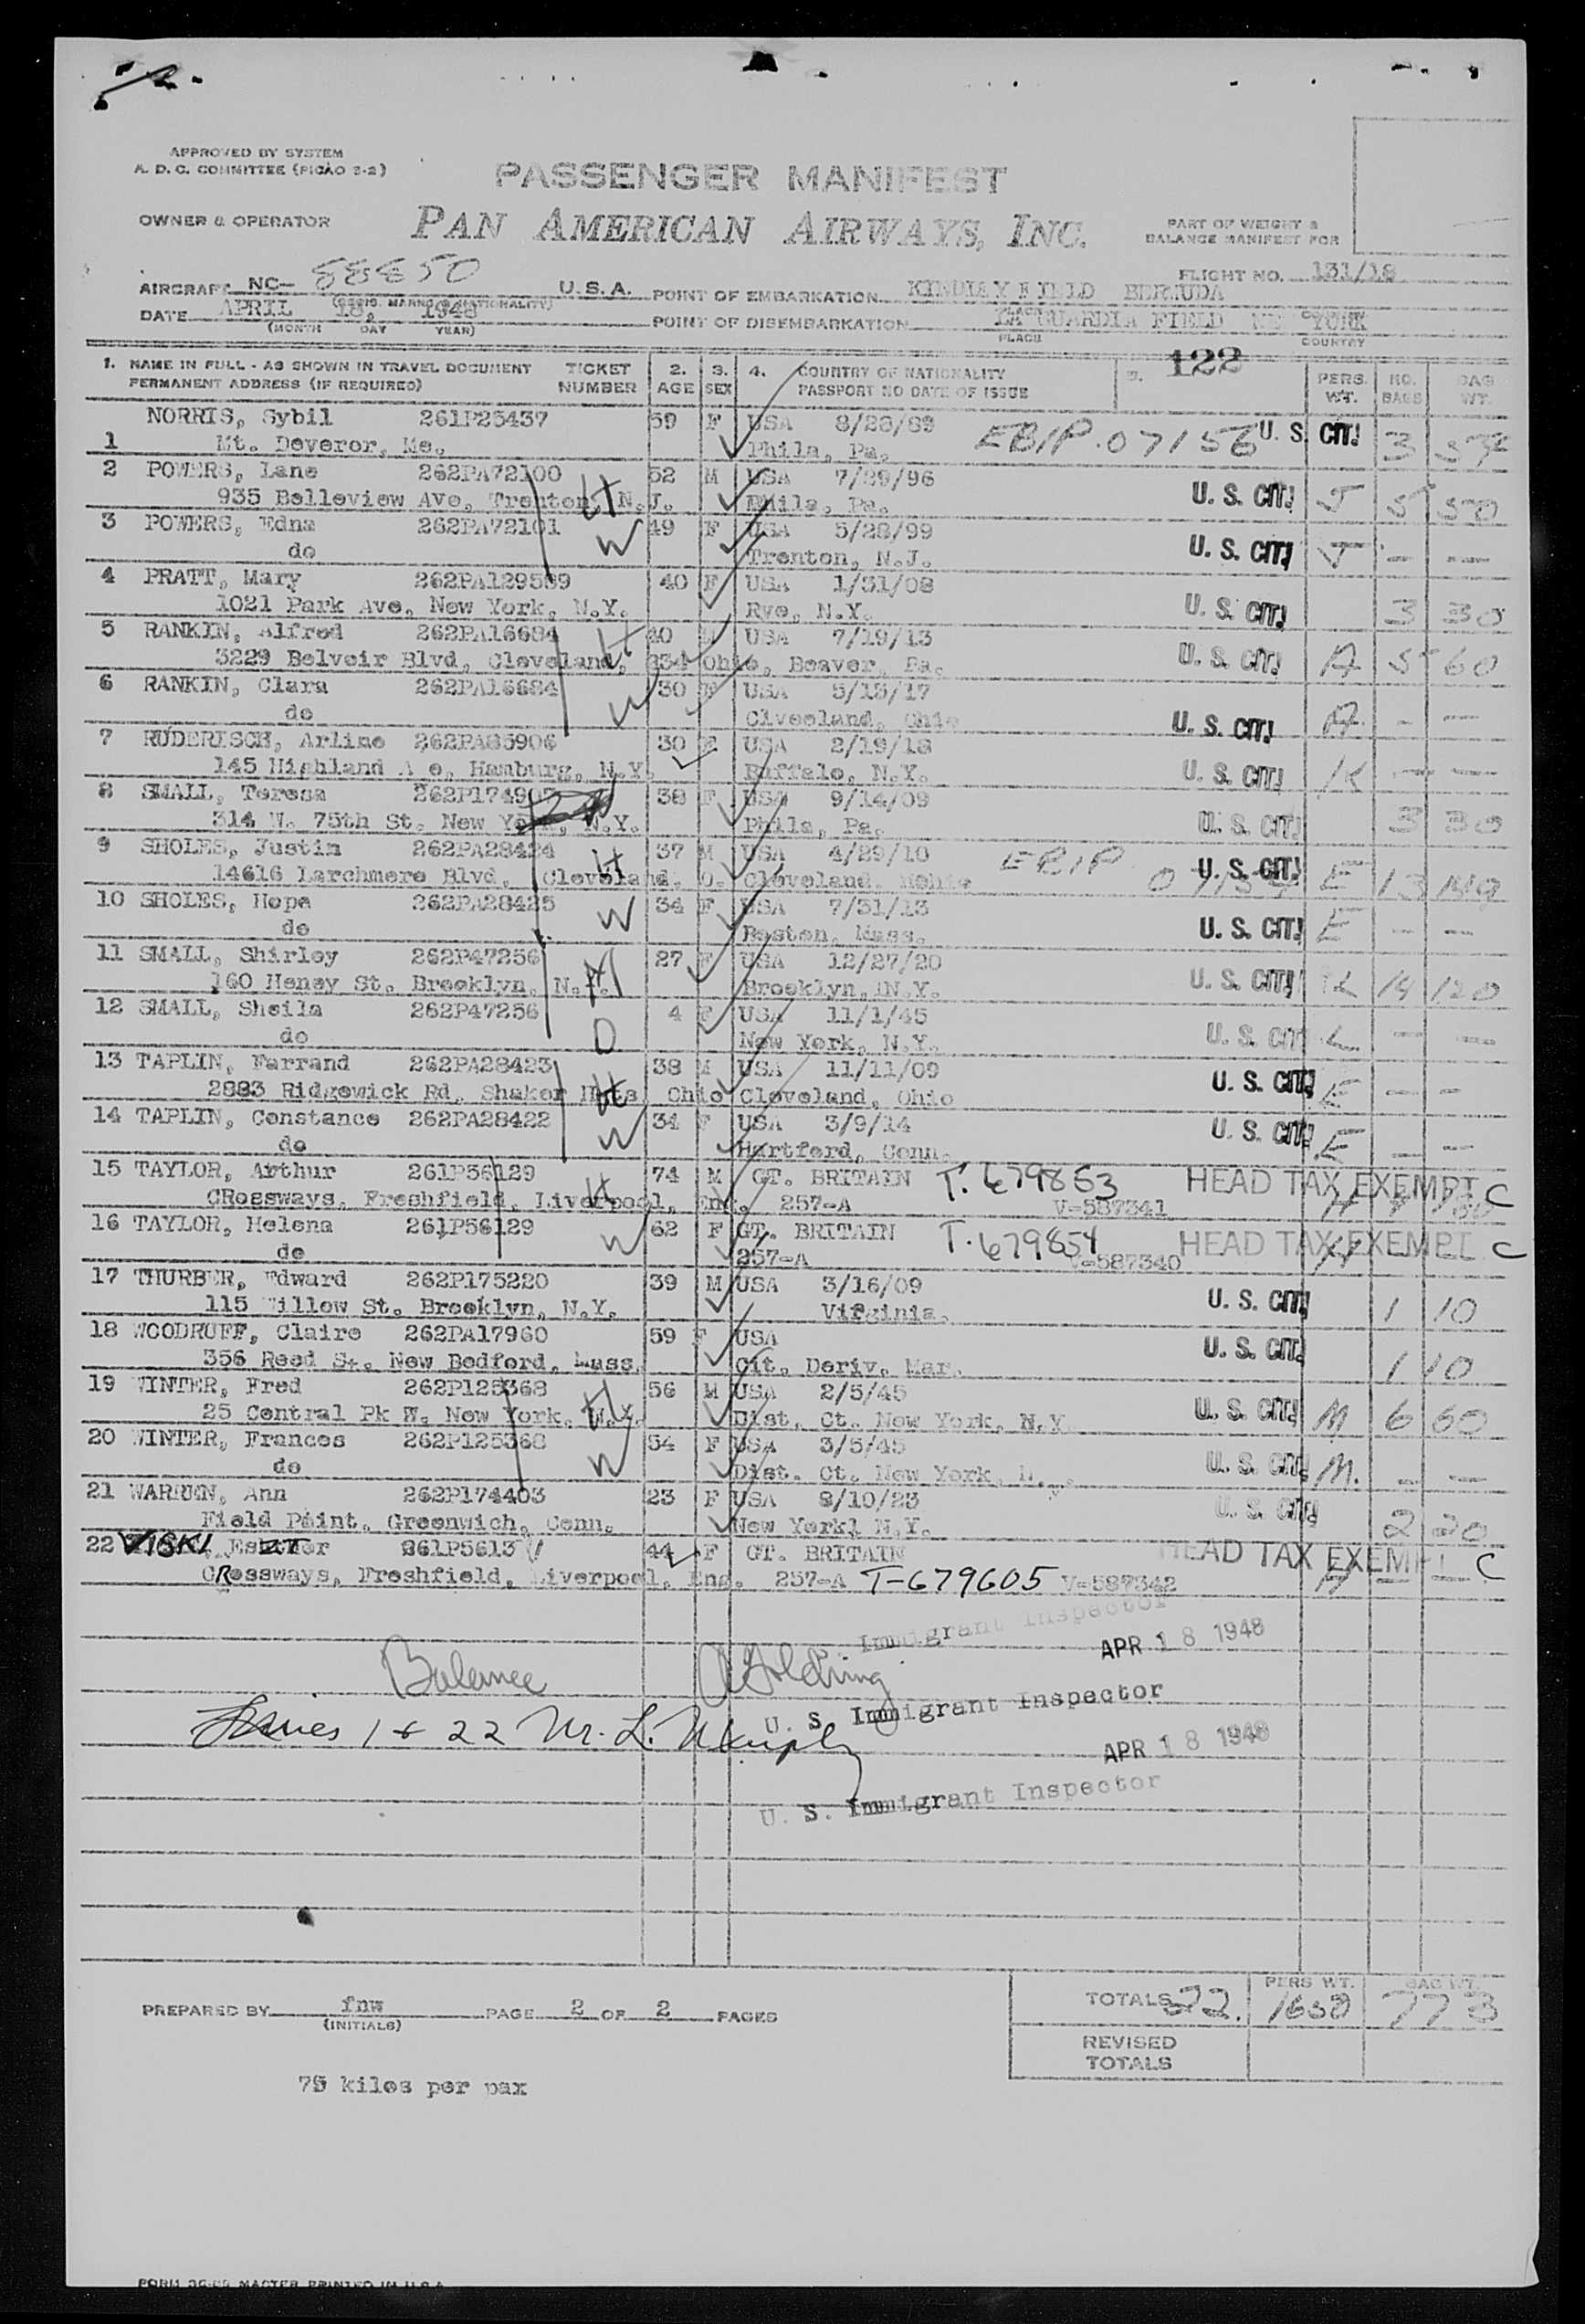 APPROVED BY SYSTEM
A. D. C. COMMITTEE (PICAO 2-2)
PASSENGER MANIFEST
OWNER & OPERATOR PAN AMERICAN AIRWAYS, INC.
PART OF WEIGHT &
BALANCE MANIFEST FOR
FLIGHT NO. 131/18
AIRCRAFT NC- 88850 U.S.A. POINT OF EMBARKATION KINDLEY FIELD BERMUDA
DATE APRIL 18, 1948 POINT OF DISEMBARKATION LA GUARDIA FIELD NEW YORK
(MONTH DAY YEAR) PLACE COUNTRY
122
1. NAME IN FULL - AS SHOWN IN TRAVEL DOCUMENT TICKET 2. 3. 4. COUNTRY OF NATIONALITY 5. PERS. NO. BAG
PERMANENT ADDRESS (IF REQUIRED) NUMBER AGE SEX PASSPORT NO DATE OF ISSUE WT. BAGS WT.
NORRIS, Sybil 261P25437 59 F USA 8/28/89 EBIP.07156 U. S. CIT!
1 Mt. Deveror, Me. Phila, Pa. 3
2 POWERS, Lane 262PA72100 52 M USA 7/29/96
935 Belleview Ave, Trenton, N.J. H Phila, Pa. U. S. CIT! J 5 50
3 POWERS, Edna 262PA72101 W 49 F USA 5/28/99
do Trenton, N.J. U. S. CIT! J - --
4 PRATT, Mary 262PA129589 40 F USA 1/31/08
1021 Park Ave, New York, N.Y. Rye, N.Y. U. S. CIT! 3 30
5 RANKIN, Alfred 262PA16684 H 40 M USA 7/19/13
3229 Belvoir Blvd, Cleveland, 334 Ohio, Beaver, Pa. U. S. CIT! A 5 60
6 RANKIN, Clara 262PA16684 W 30 F USA 5/15/17
do Clveeland, Ohio U. S. CIT! A - --
7 RUDERISCH, Arline 262PA85906 30 F USA 2/19/18
145 Highland A e, Hamburg, N.Y. Buffalo, N.Y. U. S. CIT! K -- --
8 SMALL, Teresa 262P17490 38 F USA 9/14/09
314 W. 75th St, New York, N.Y. Phila, Pa. U. S. CIT! 3 30
9 SHOLES, Justin 262PA28424 H 37 M USA 4/29/10 EBIP
14616 Larchmere Blvd, Cleveland, O. Cleveland, U. S. CIT! E 13 149
10 SHOLES, Hope 262PA28425 W 34 F USA 7/31/13
do Boston, Mass. U. S. CIT! E -- --
11 SMALL, Shirley 262P47256 27 F USA 12/27/20
160 Heney St. Brooklyn, N.Y. Brooklyn, N.Y. U. S. CIT! L 14 120
12 SMALL, Sheila 262P47256 4 F USA 11/1/45
do D New York, N.Y. U. S. CIT L - --
13 TAPLIN, Farrand 262PA28423 38 M USA 11/11/09
2883 Ridgewick Rd, Shaker Hts H Ohio Cleveland, Ohio U. S. CIT! E - -
14 TAPLIN, Constance 262PA28422 34 F USA 3/9/14
do W Hartford, Conn. U. S. CIT! E - --
15 TAYLOR, Arthur 261P56129 74 M GT. BRITAIN T.679853 HEAD TAX EXEMPT C
CRossways, Freshfield, Liverpool, Eng. 257-A V-587341 H
16 TAYLOR, Helena 261P56129 W 62 F GT. BRITAIN T.679854 HEAD TAX EXEMPT C
do 257-A V-587340 H
17 THURBER, Edward 262P175220 39 M USA 3/16/09
115 Willow St. Brooklyn, N.Y. Virginia, U. S. CIT! 1 10
18 WOODRUFF, Claire 262PA17960 59 F USA
356 Reed St. New Bedford, Mass. Cit. Deriv. Mar. U. S. CIT. 1 10
19 WINTER, Fred 262P125368 56 M USA 2/5/45
25 Central Pk W. New York, N.Y. H Dist. Ct. New York, N.Y. U. S. CIT! M 6 60
20 WINTER, Frances 262P125368 54 F USA 3/5/45
do W Dist. Ct. New York, N. U. S. CIT! M. - --
21 WARREN, Ann 262P174403 23 F USA 8/10/23
Field Point, Greenwich, Conn. New York, N.Y. U. S. CIT! 2 20
22 Esther 261P5613 44 F GT. BRITAIN HEAD TAX EXEMPT C
CRossways, Freshfield, Liverpool, Eng. 257-A T-679605 V-587342 H
Immigrant Inspector
APR 18 1948
Balance
U. S. Immigrant Inspector
1 & 22 M. L. Murphy
APR 18 1948
U. S. Immigrant Inspector
PREPARED BY fnw PAGE 2 OF 2 PAGES
(INITIALS)
PERS WT. BAG WT.
TOTALS 22. 1650 773
REVISED
TOTALS
75 kilos per pax